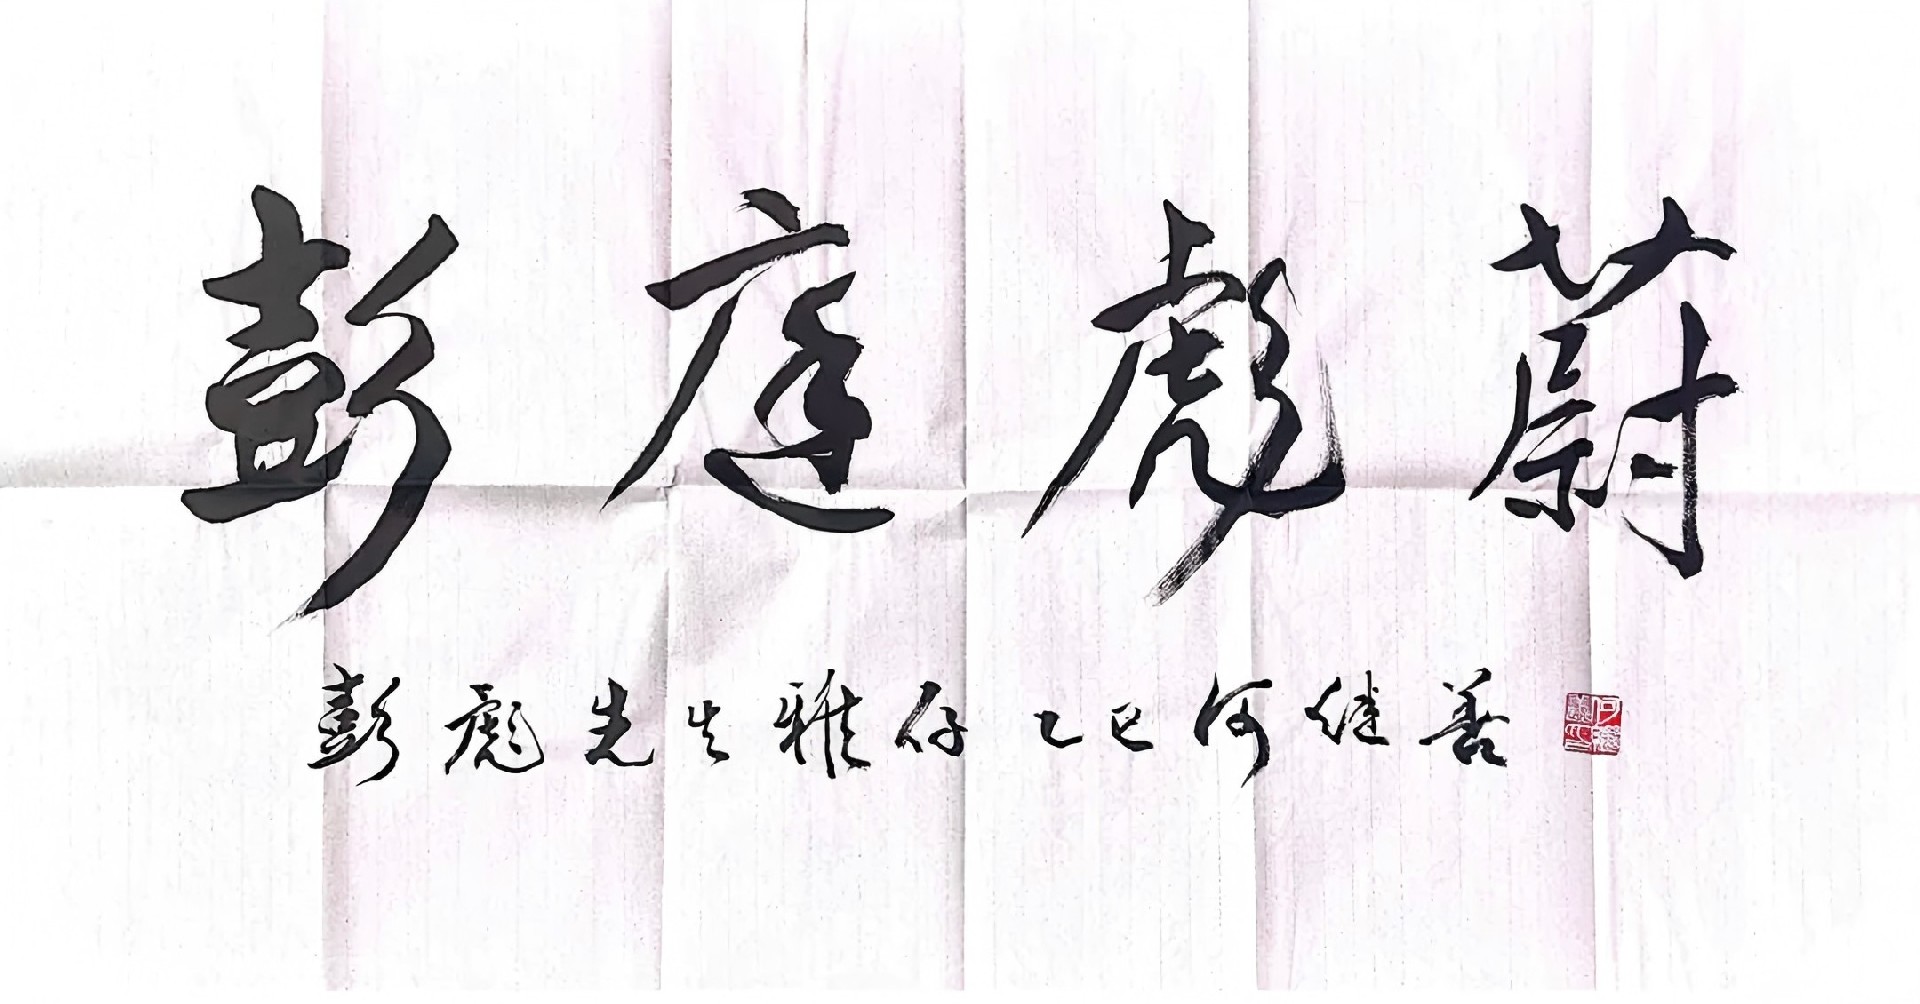 彭庭彪蔚
彭彪先生雅存 乙巳何继善